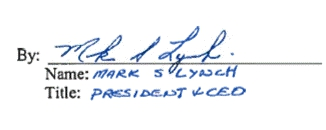 By: Mark S Lynch
Name: MARK S LYNCH
Title: PRESIDENT & CEO